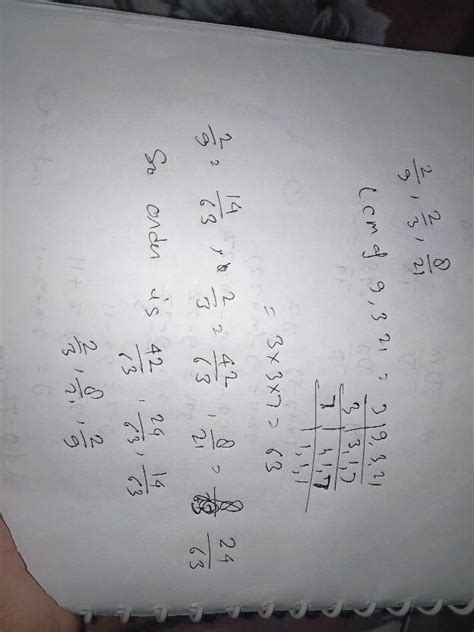 2/9, 2/3, 8/21
Lcm of 9, 3 21 = 3 | 9, 3, 21
3 | 3, 1, 7
7 | 1, 1, 7
1, 1, 1
= 3 x 3 x 7 = 63
2/9 = 14/63 , 2/3 = 42/63 , 8/21 = 24/63
So order is 42/63 , 24/63 , 14/63
2/3 , 8/21 , 2/9